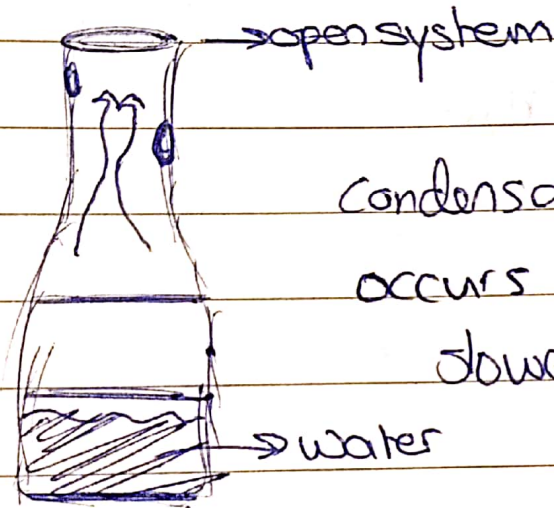 open system
condensa
occurs
slow
water